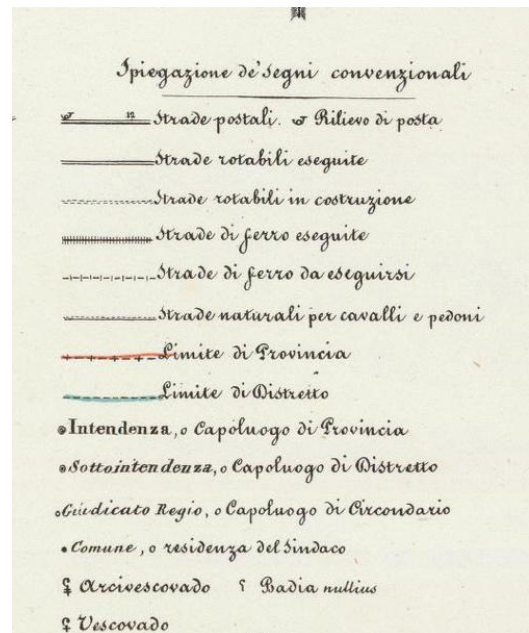 Spiegazione de' Segni convenzionali
Strade postali. Rilievo di posta
Strade rotabili eseguite
Strade rotabili in costruzione
Strade di ferro eseguite
Strade di ferro da eseguirsi
Strade naturali per cavalli e pedoni
Limite di Provincia
Limite di Distretto
Intendenza, o Capoluogo di Provincia
Sottointendenza, o Capoluogo di Distretto
Giudicato Regio, o Capoluogo di Circondario
Comune, o residenza del Sindaco
Arcivescovado Badia nullius
Vescovado